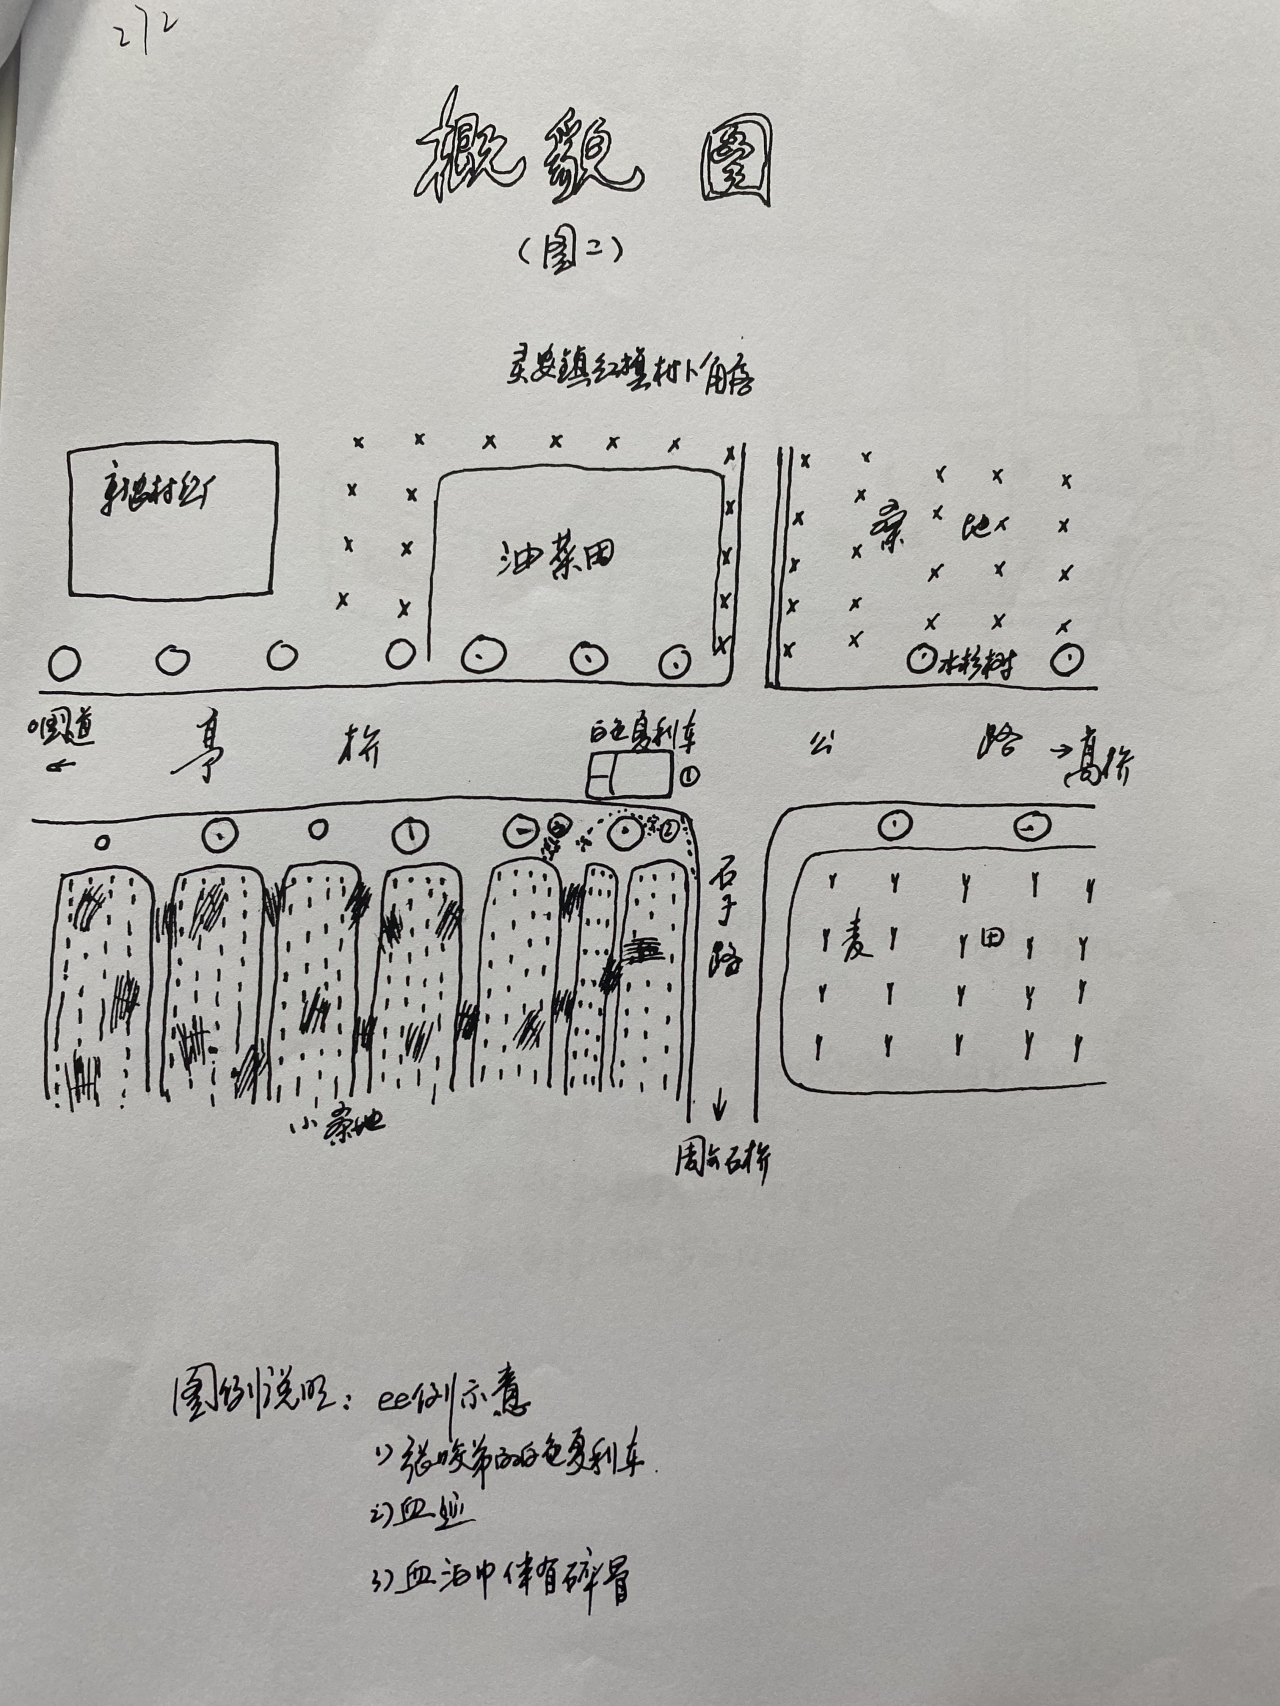 272
概貌图
(图二)
灵安镇红旗村卜角厍
新农村红厂
油菜田
桑地
水杉树
国道
←
亭桥公路
→高桥
白色夏利车
①
②
石子路
麦田
小桑地
↓
周会石桥
图例说明：
示意
1)张晓弟的白色夏利车.
2)血迹
3)血泊中伴有碎骨